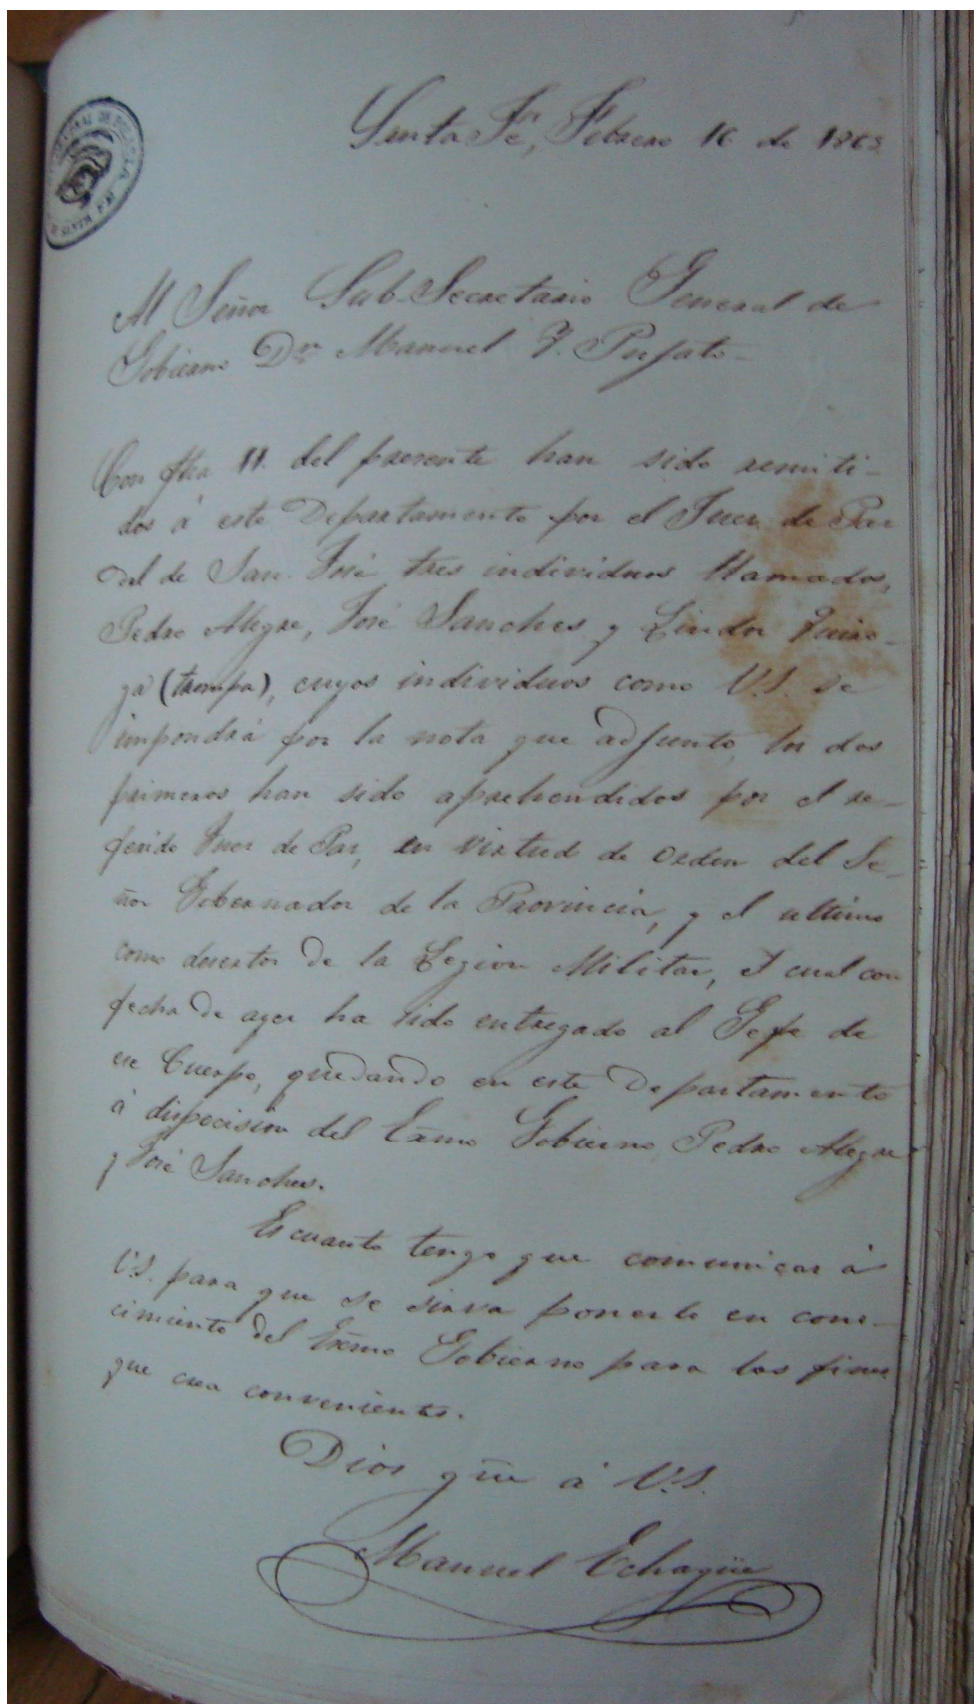 Santa Fé, Febrero 16 de 1865
Al Señor Sub-Secretario General de
Gobierno Dn Manuel Y. Pujato-
Con fha 11. del presente han sido remiti-
dos á este Departamento por el Juez de Paz
del de San José tres individuos llamados,
Pedro Alegre, José Sanches y Lindor Quiro-
ga (trompa), cuyos individuos como V.S. se
impondrá por la nota que adjunto, los dos
primeros han sido aprehendidos por el re-
ferido Juez de Paz, en virtud de orden del Se-
ñor Gobernador de la Provincia, y el ultimo
como desertor de la Legion Militar, el cual con
fecha de ayer ha sido entregado al Gefe de
ese Cuerpo, quedando en este Departamento
á dispocision del Exmo Gobierno Pedro Alegre
y José Sanches.
Es cuanto tengo que comunicar á
V.S. para que se sirva ponerlo en cono-
cimiento del Exmo Gobierno para los fines
que crea convenientes.
Dios gũe á V.S.
Manuel Echagüe